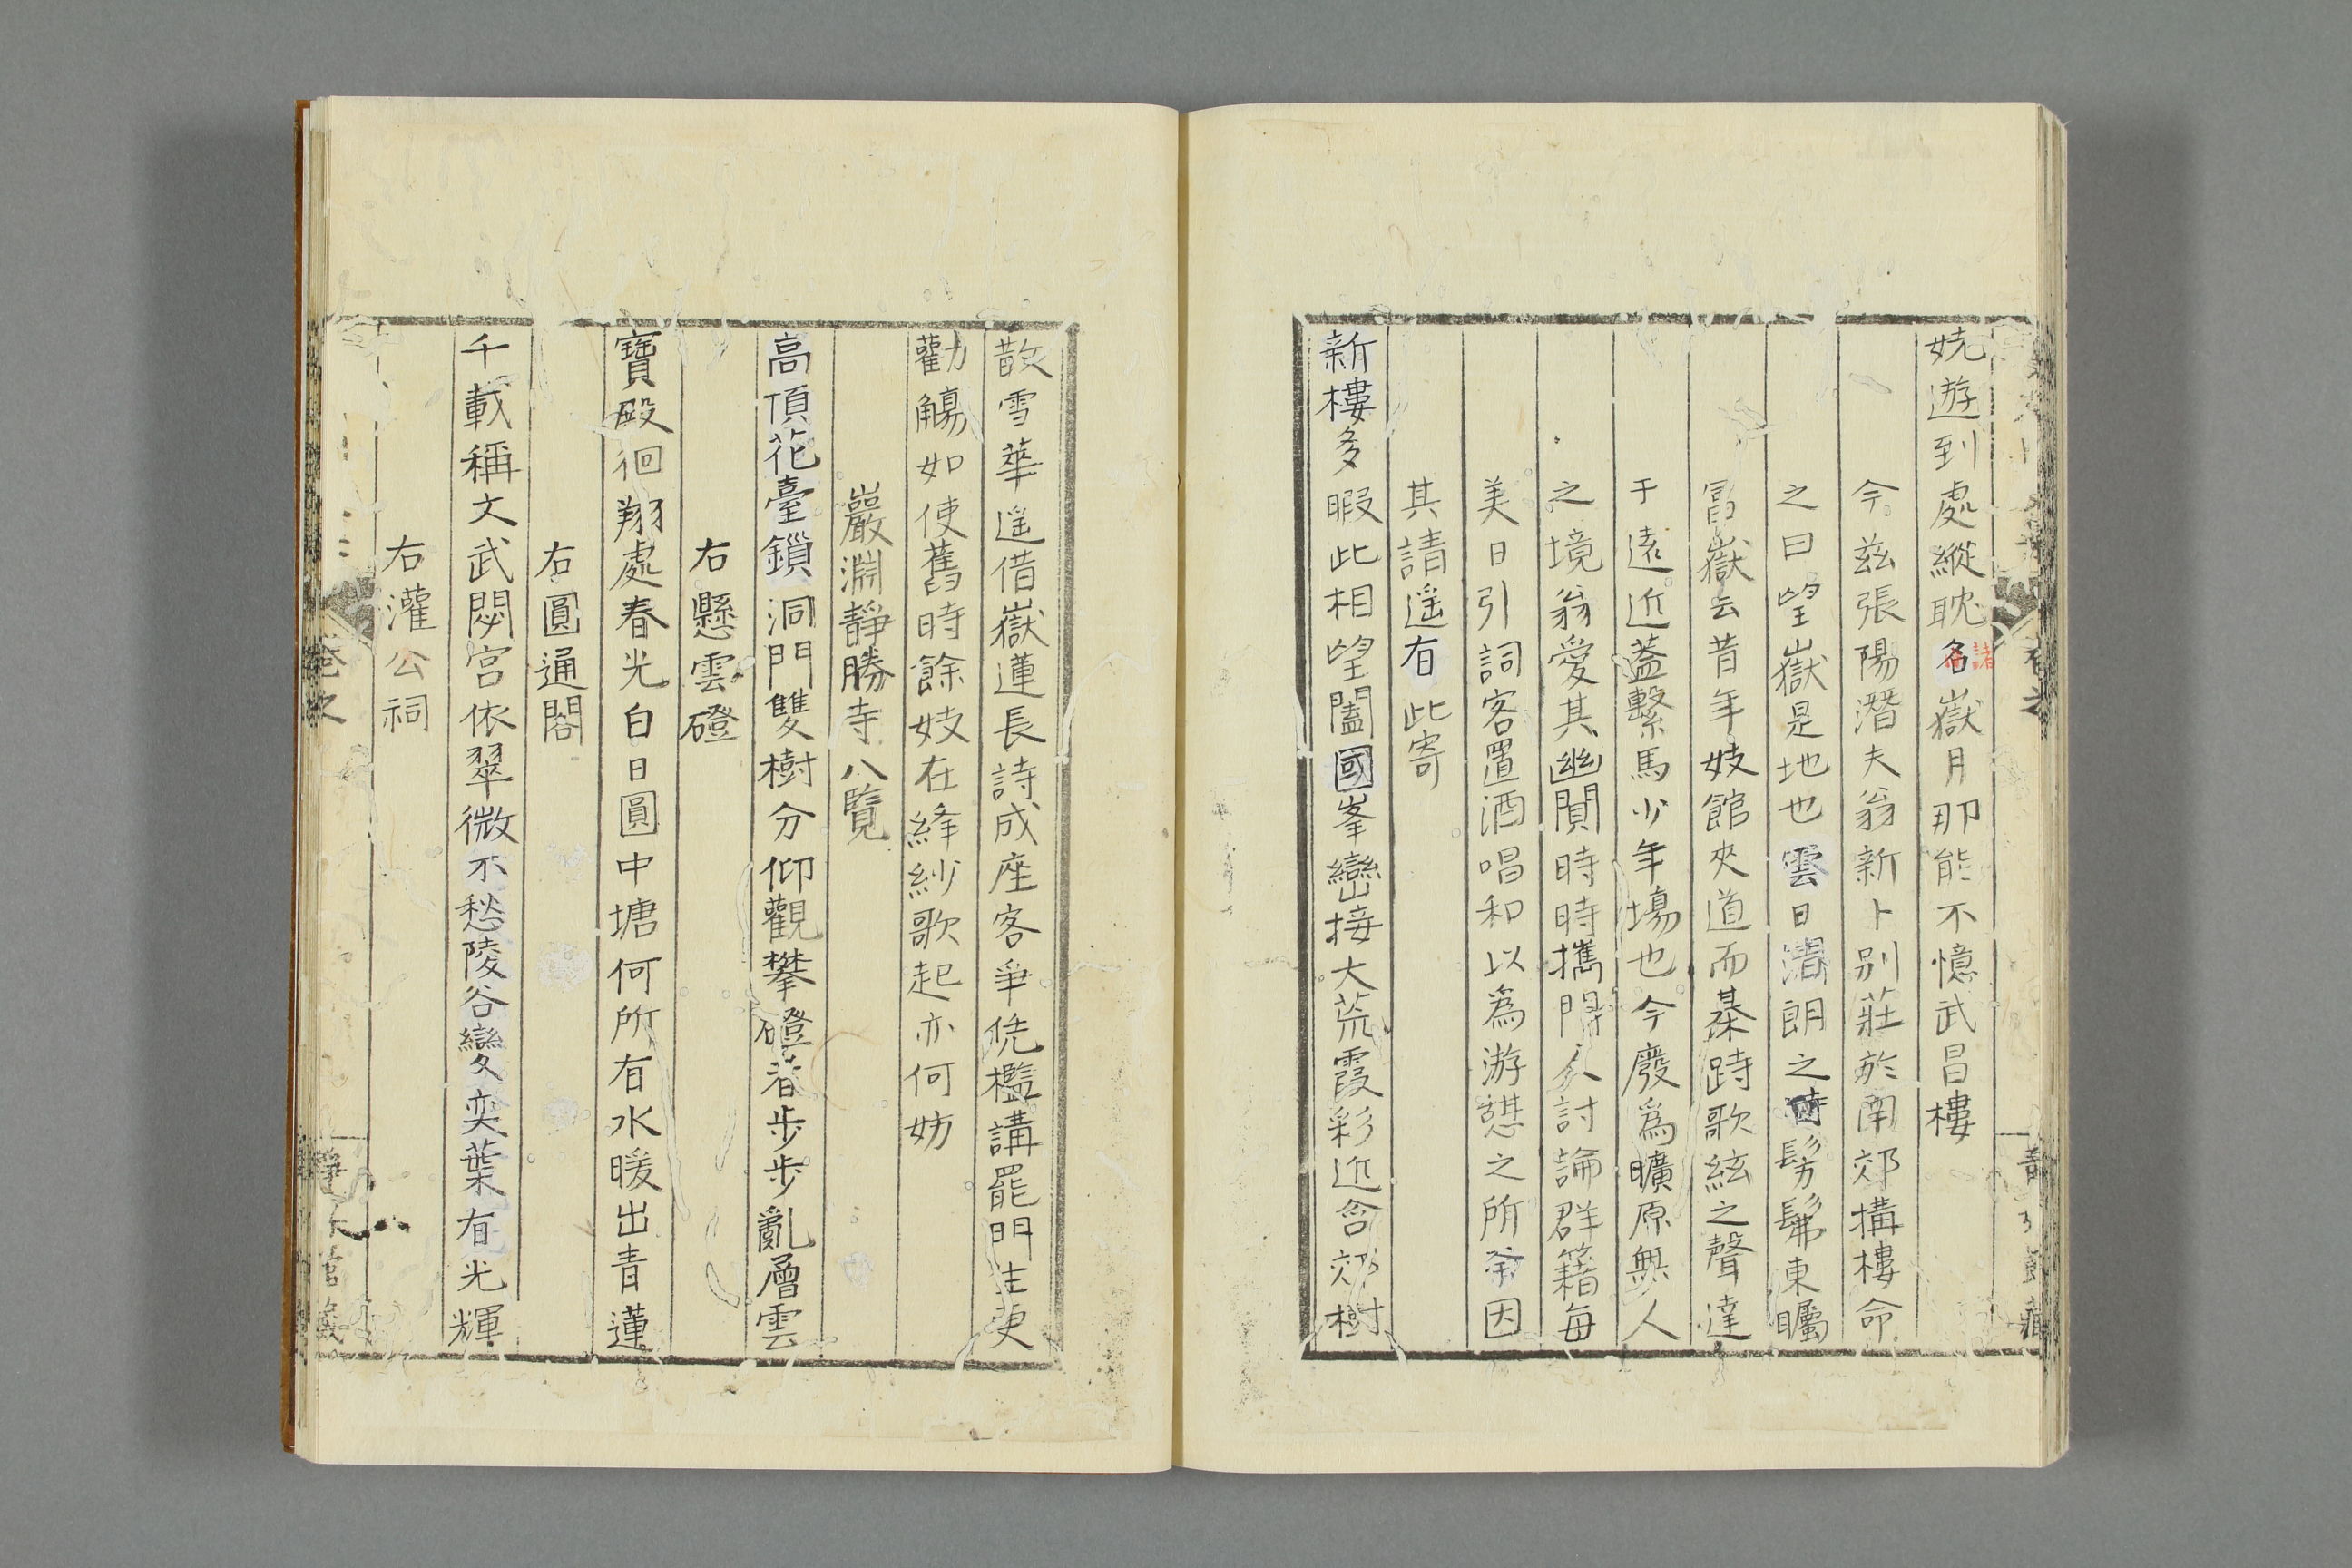 嬈遊到處縱耽名嶽月那能不憶武昌樓
諸
今茲張陽潛夫翁新卜別莊於南郊構樓命
之曰望嶽是地也雲日清朗之時髣髴東矚
冨嶽云昔年妓館夾道而棊跱歌絃之聲達
于遠近蓋繫馬少年場也今廢爲曠原無人
之境翁愛其幽閴時時攜門人討論群籍每
美日引詞客置酒唱和以爲游憩之所余因
其請遥有此寄
新樓多暇此相望闔國峯巒接大荒霞彩近含郊樹
散雪華遥借嶽蓮長詩成座客爭凭檻講罷門生更
勸觴如使舊時餘妓在絳紗歌起亦何妨
巖淵靜勝寺八覽
高頂花臺鎖洞門雙樹分仰觀攀磴者步步亂層雲
右懸雲磴
寶殿徊翔處春光白日圓中塘何所有水暖出青蓮
右圓通閣
千載稱文武閟宮依翠微不愁陵谷變奕葉有光輝
右灌公祠